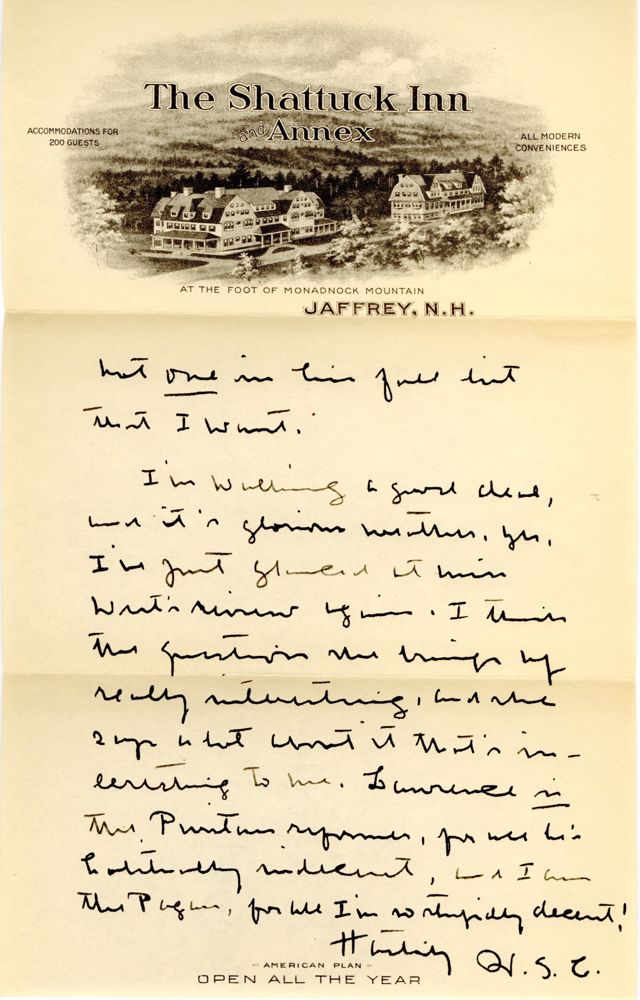 The Shattuck Inn
and Annex
ACCOMMODATIONS FOR
200 GUESTS
ALL MODERN
CONVENIENCES
AT THE FOOT OF MONADNOCK MOUNTAIN
JAFFREY, N.H.
not one in his full list
that I want.
I'm walking a good deal,
and it's glorious weather. Yes,
I've just glanced at Miss
West's review again. I think
the question she brings up
really interesting, and she
says a lot about it that's in-
teresting to me. Lawrence is
the Puritan reformer, for all his
habitually indecent, and I am
the Pagan, for all I'm so stupidly decent!
Hastily W.S.C.
AMERICAN PLAN
OPEN ALL THE YEAR